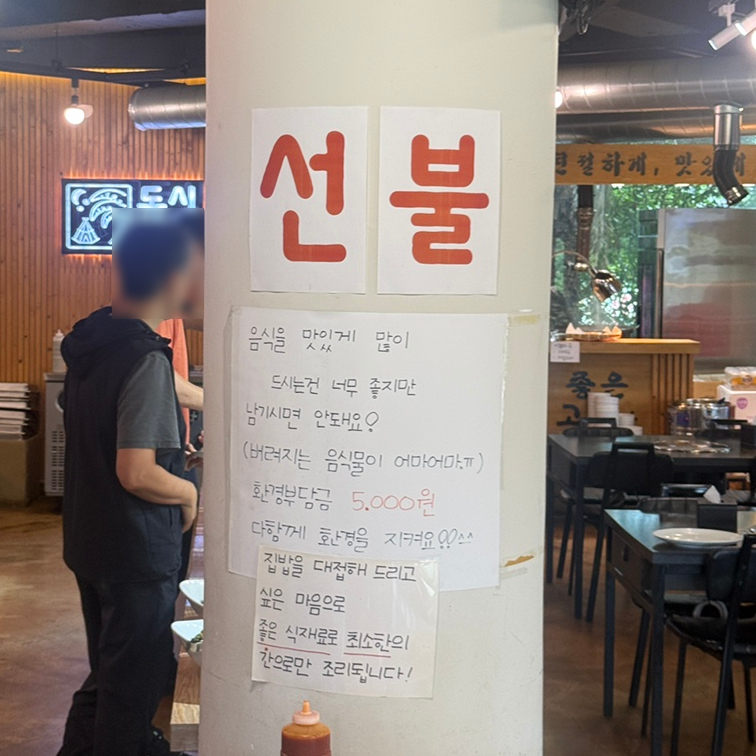 선불
도시
친절하게, 맛있게
음식을 맛있게 많이
드시는건 너무 좋지만
남기시면 안돼요?
(버려지는 음식물이 어마어마ㅠ)
환경부담금 5.000원
다함께 환경을 지켜요!!^^
집밥을 대접해 드리고
싶은 마음으로
좋은 식재료로 최소한의
간으로만 조리됩니다!
좋을